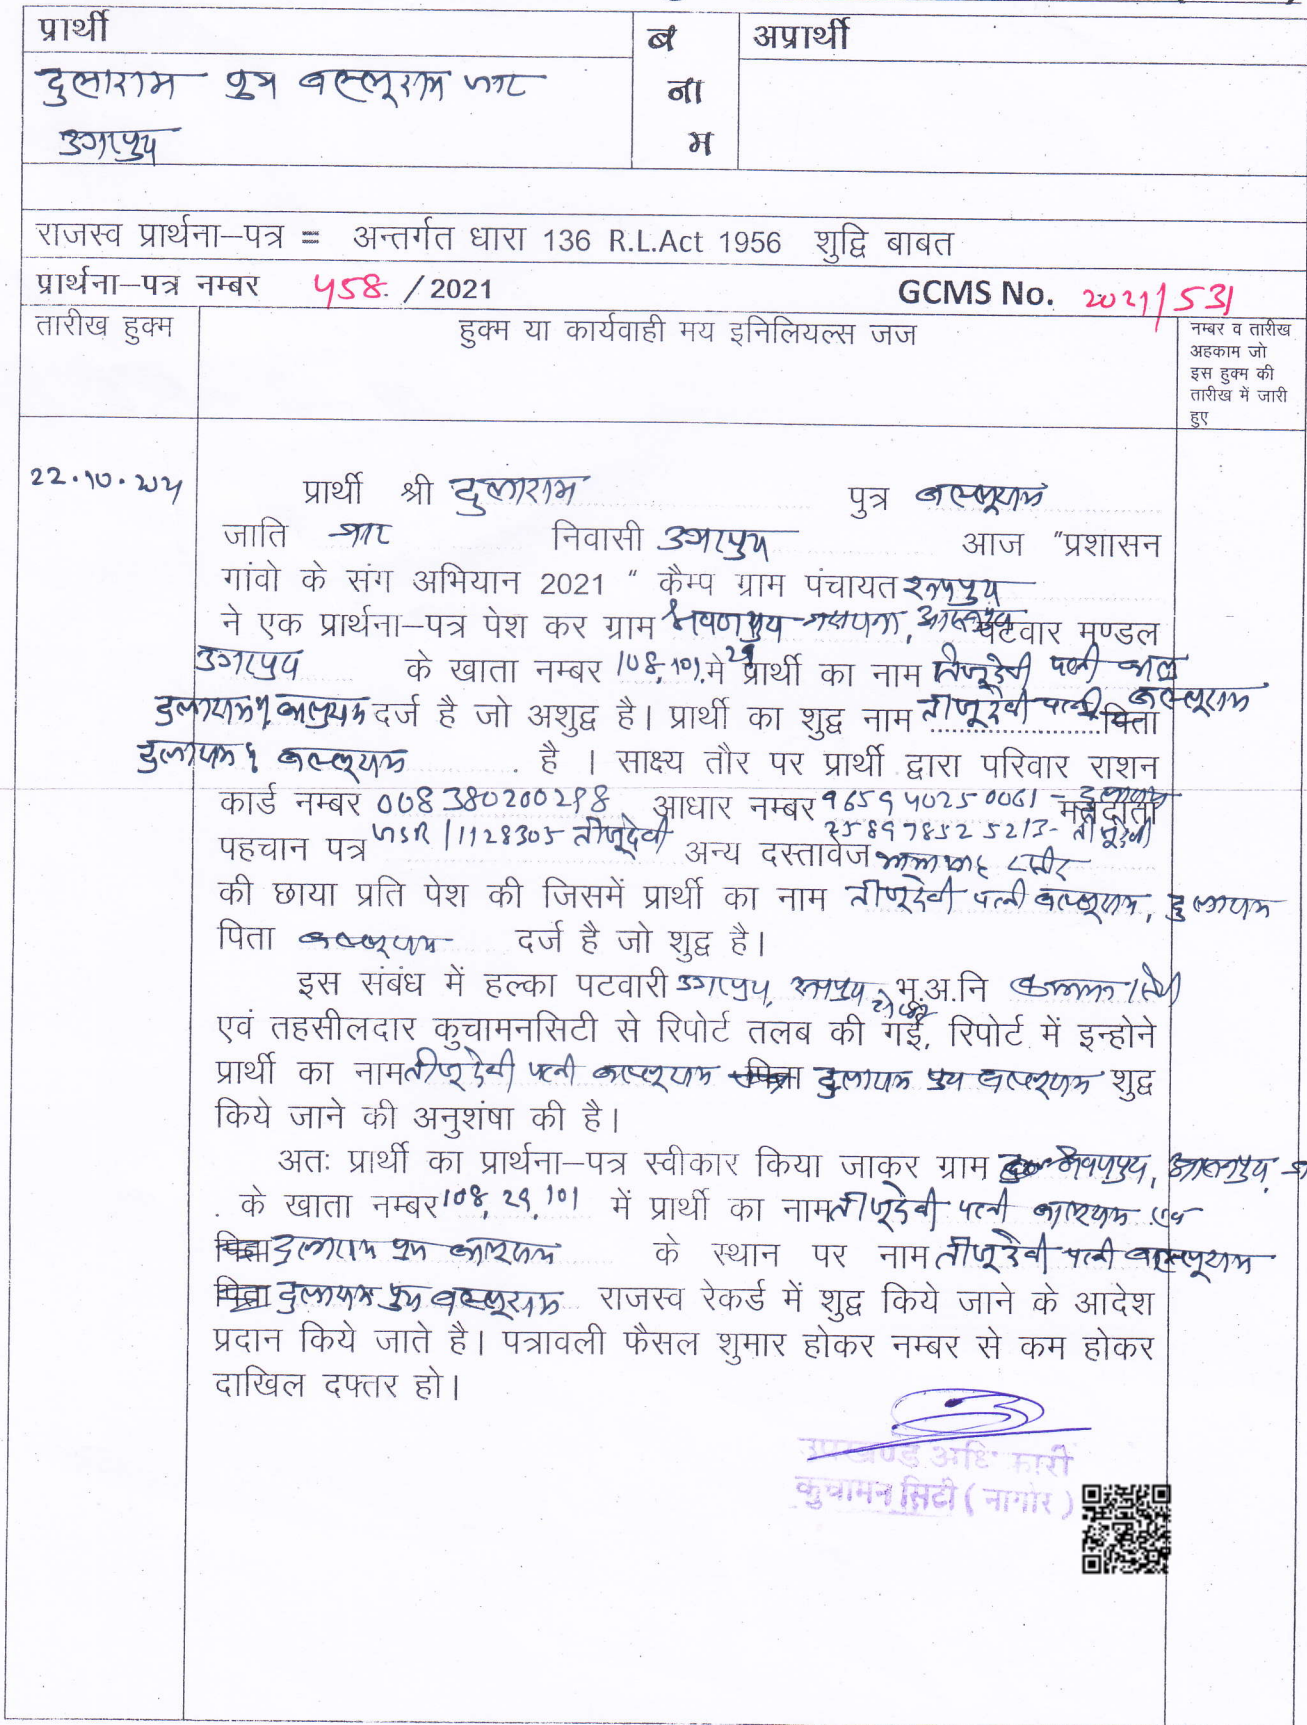 प्रार्थी
ब
ना
म
अप्रार्थी
दुलाराम पुत्र बल्लूराम जाट
उगरपुरा
राजस्व प्रार्थना–पत्र = अन्तर्गत धारा 136 R.L.Act 1956 शुद्वि बाबत
प्रार्थना–पत्र नम्बर 458 / 2021 GCMS No. 2021/531
तारीख हुक्म
हुक्म या कार्यवाही मय इनिलियल्स जज
नम्बर व तारीख
अहकाम जो
इस हुक्म की
तारीख में जारी
हुए
22.10.2021
प्रार्थी श्री दुलाराम पुत्र बल्लूराम
जाति जाट निवासी उगरपुरा आज "प्रशासन
गांवो के संग अभियान 2021 " कैम्प ग्राम पंचायत
ने एक प्रार्थना–पत्र पेश कर ग्राम पटवार मण्डल
उगरपुरा के खाता नम्बर 108, 101, 29 मे प्रार्थी का नाम तीजूदेवी पत्नी
दर्ज है जो अशुद्व है। प्रार्थी का शुद्व नाम तीजूदेवी पत्नी बल्लूराम पिता
दुलाराम बल्लूराम है । साक्ष्य तौर पर प्रार्थी द्वारा परिवार राशन
कार्ड नम्बर 008380200298 आधार नम्बर 965940250061 - दुलाराम मतदाता
258978525213- तीजूदेवी
पहचान पत्र /1128305 तीजूदेवी अन्य दस्तावेज
की छाया प्रति पेश की जिसमें प्रार्थी का नाम तीजूदेवी पत्नी बल्लूराम, दुलाराम
पिता बल्लूराम दर्ज है जो शुद्व है।
इस संबंध में हल्का पटवारी उगरपुरा, भू.अ.नि
एवं तहसीलदार कुचामनसिटी से रिपोर्ट तलब की गई, रिपोर्ट में इन्होने
प्रार्थी का नाम तीजूदेवी पत्नी बल्लूराम दुलाराम पुत्र बल्लूराम शुद्व
किये जाने की अनुशंषा की है।
अतः प्रार्थी का प्रार्थना–पत्र स्वीकार किया जाकर ग्राम
के खाता नम्बर 108, 29, 101 में प्रार्थी का नाम तीजूदेवी पत्नी कालूराम एवं
दुलाराम पुत्र कालूराम के स्थान पर नाम तीजूदेवी पत्नी बल्लूराम
दुलाराम पुत्र बल्लूराम राजस्व रेकर्ड में शुद्व किये जाने के आदेश
प्रदान किये जाते है। पत्रावली फैसल शुमार होकर नम्बर से कम होकर
दाखिल दफ्तर हो।
उपखण्ड अधिकारी
कुचामन सिटी ( नागौर )